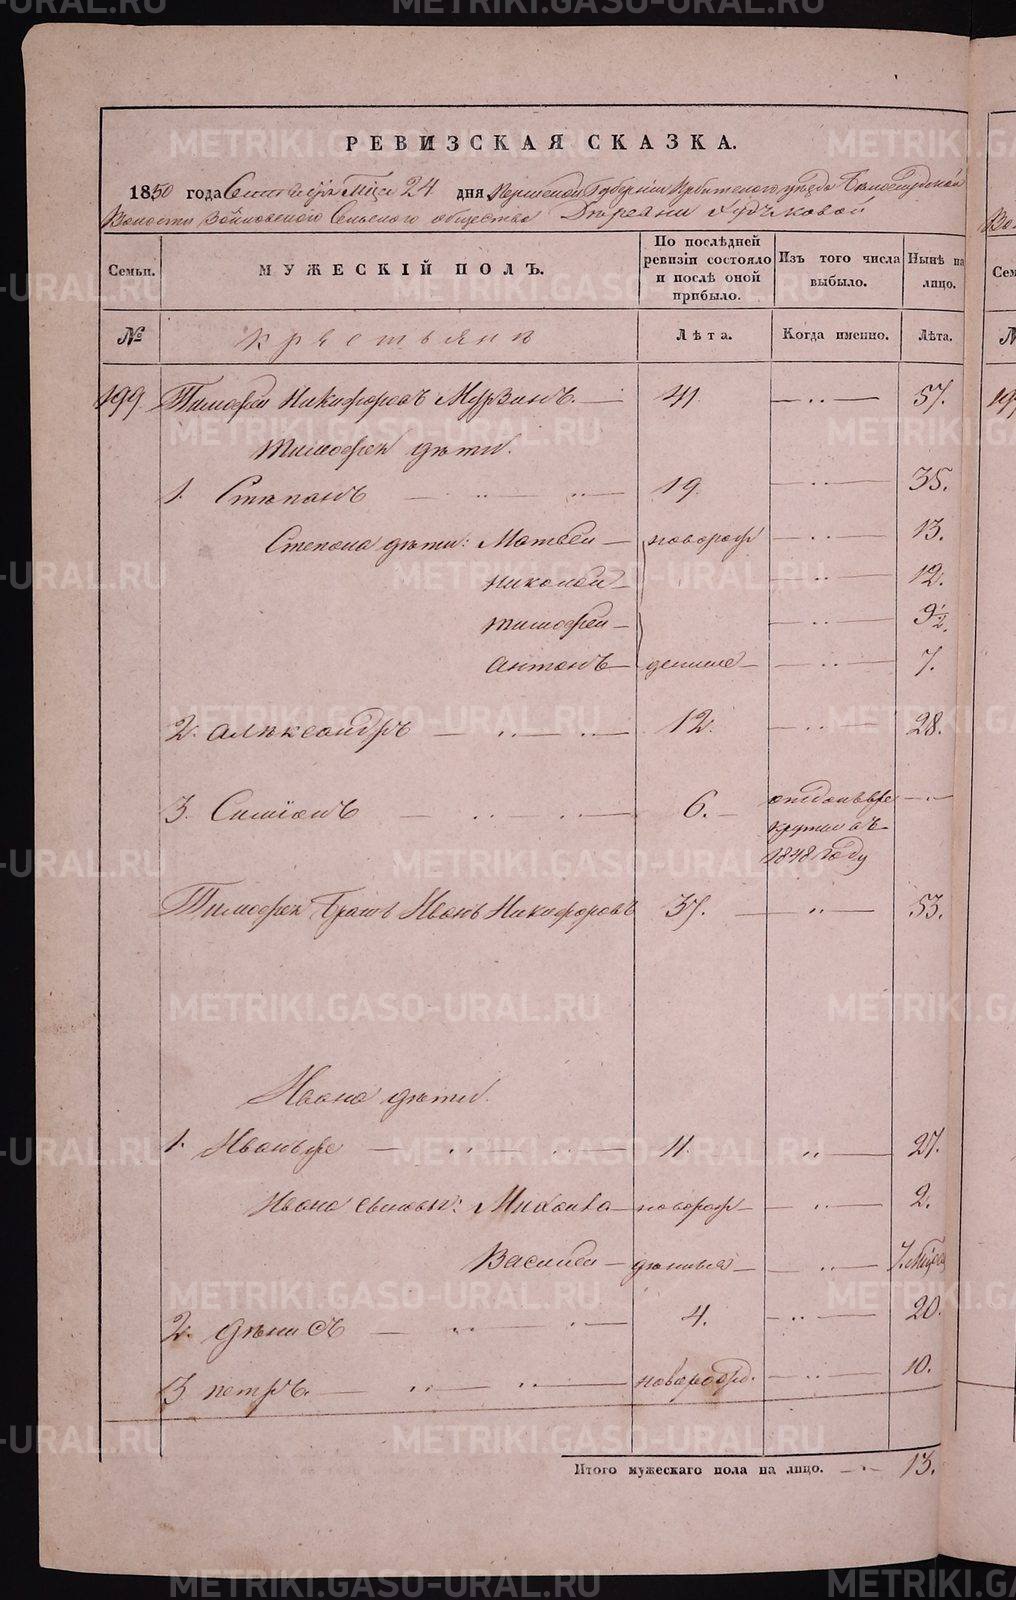 РЕВИЗСКАЯ СКАЗКА.
1850 года Сентября Мца 24 дня Пермской Губернии Ирбитского уезда Белослудской
Волости Войновского Сельского общества Деревни
Семьи. МУЖЕСКІЙ ПОЛЪ. По послѣдней ревизіи состояло и послѣ оной прибыло. Изъ того числа выбыло. Нынѣ на лицо.
№ крестьяне Лѣта. Когда именно. Лѣта.
199 Тимофей Никифоровъ Мурзинъ. 41. — „ — 57.
Тимофея дѣти.
1. Стѣпанъ — „ „ — 19. — „ — 35.
Степана дѣти: Матвей — новорож — „ — 13.
Николай — „ — 12.
Тимофей — „ — 9 1/2.
Антонъ — денные — „ — 7.
2. Алѣксандръ — „ — „ — 12. — „ — 28.
3. Симіонъ — „ „ — 6. — отданъ в ре
круты въ
1848 году
Тимофея Братъ Иванъ Никифоровъ 37. — „ — 53.
Ивана дѣти.
1. Иванъ же — „ „ — 11. „ — 27.
Ивана сыновья: Михаила — новорож — „ — 2.
Василей — дѣнныя — „ — 7. Мцовъ
2. Дѣнисъ — „ „ — 4. — „ — 20.
3 Петръ. — „ — „ — новорожд. — „ — 10.
Итого мужескаго пола на лицо. — „ — 13.
METRIKI.GASO-URAL.RU